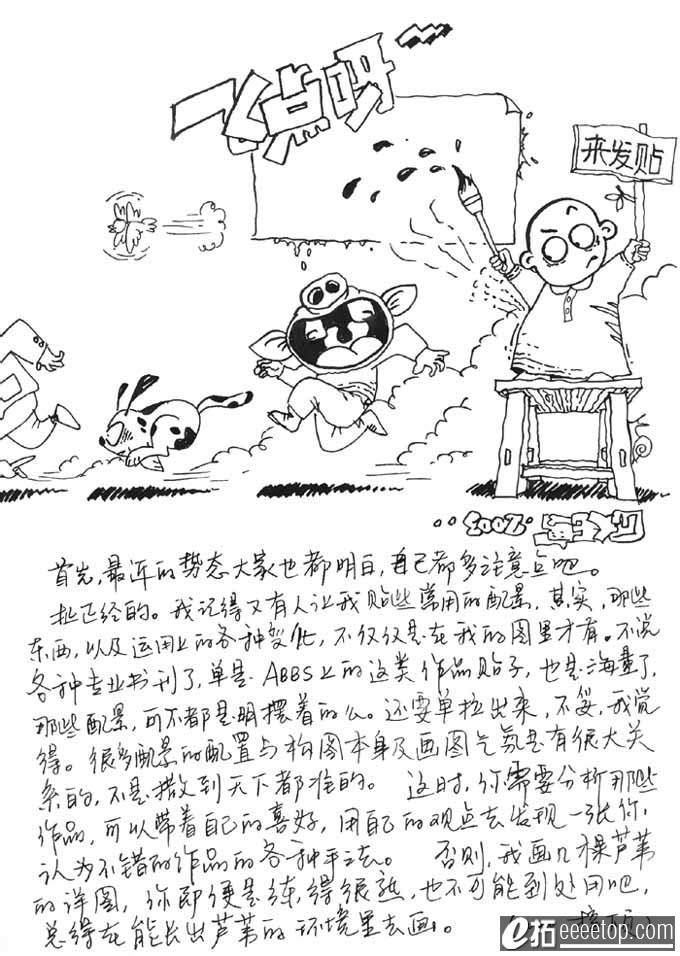 飞点呀
来发贴
2003.
首先,最近的势态大家也都明白,自己都多注意点吧。
扯正经的。我记得又有人让我贴些常用的配景,其实,那些
东西,以及运用上的各种变化,不仅仅是在我的图里才有。不说
各种专业书刊了,单是ABBS上的这类作品贴子,也是海量了,
那些配景,可不都是明摆着的么。还要单拉出来,不妥,我觉
得。很多配景的配置与构图本身及画图气氛是有很大关
系的,不是撒到天下都准的。 这时,你需要分析那些
作品,可以带着自己的喜好,用自己的观点去发现一张你
认为不错的作品的各种手法。 否则,我画几棵芦苇
的详图,你即便是练得很熟,也不可能到处用吧,
总得在能长出芦苇的环境里去画。
e拓 eeeetop.com